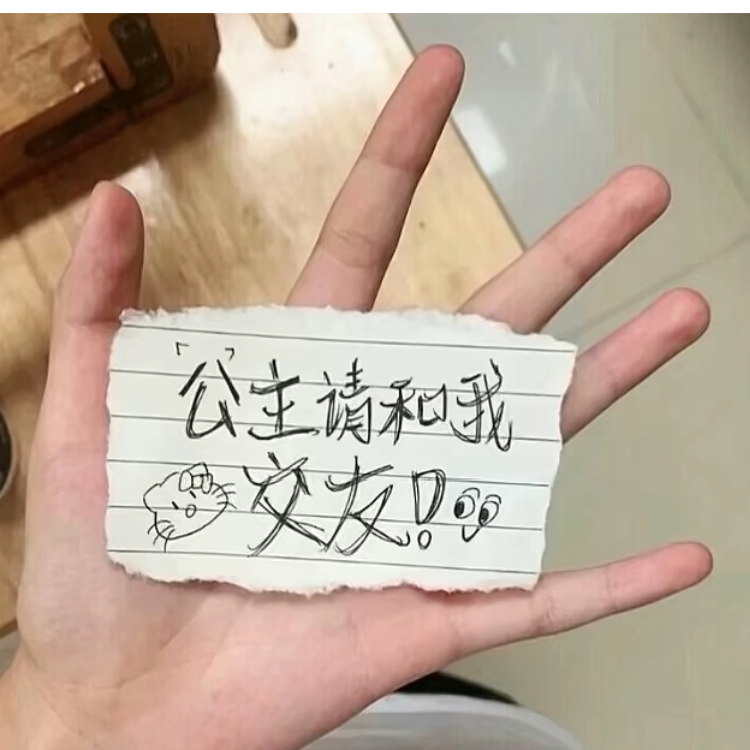 「」
公主请和我
交友!